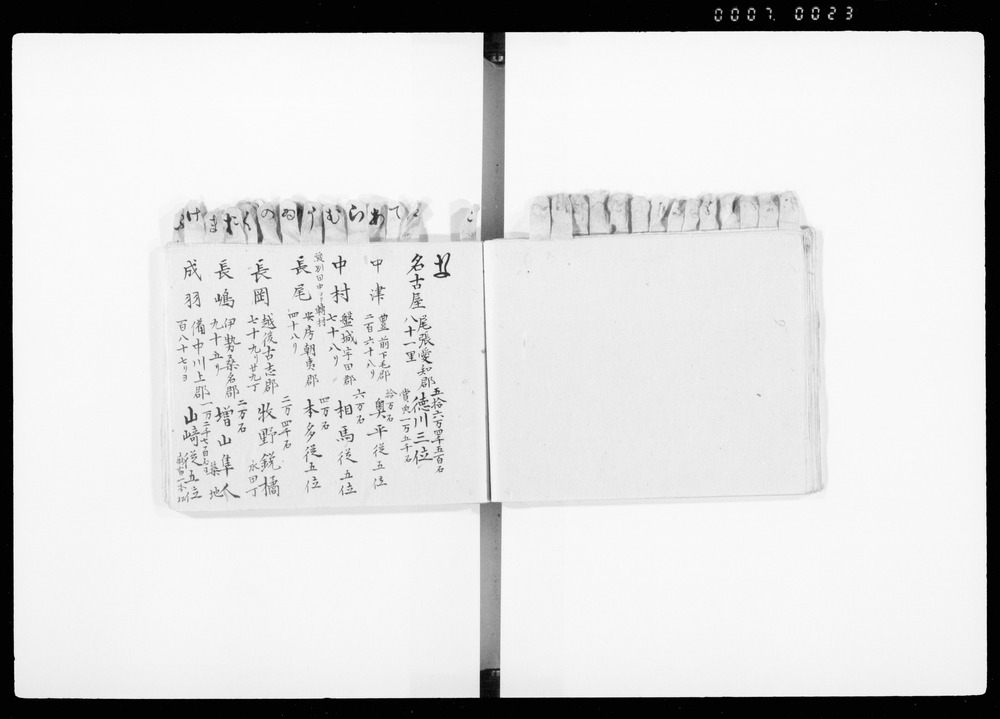 0007 0023
な
名古屋 尾張愛知郡 五拾六万四千五百石 徳川三位
八十一里 賞典一万五千石
中津 豊前下毛郡 拾万石 奥平従五位
二百六十八リ
中村 盤城宇田郡 六万石 相馬従五位
七十八リ
長尾 安房朝夷郡 四万石 本多従五位
四十八リ
長岡 越後古志郡 二万四千石 牧野鋭橘
七十九リ廿九丁 永田丁
長嶋 伊勢桑名郡 二万石 増山隼人
九十五リ 築地
成羽 備中川上郡 山崎従五位
百八十七リヨ